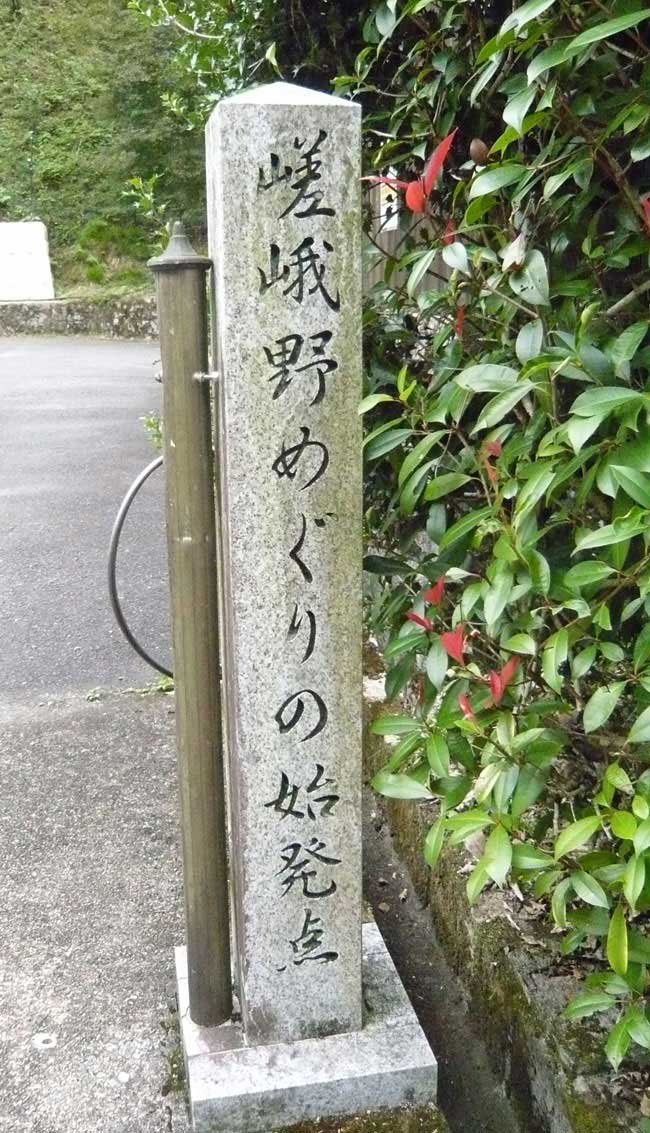 嵯峨野めぐりの始発点